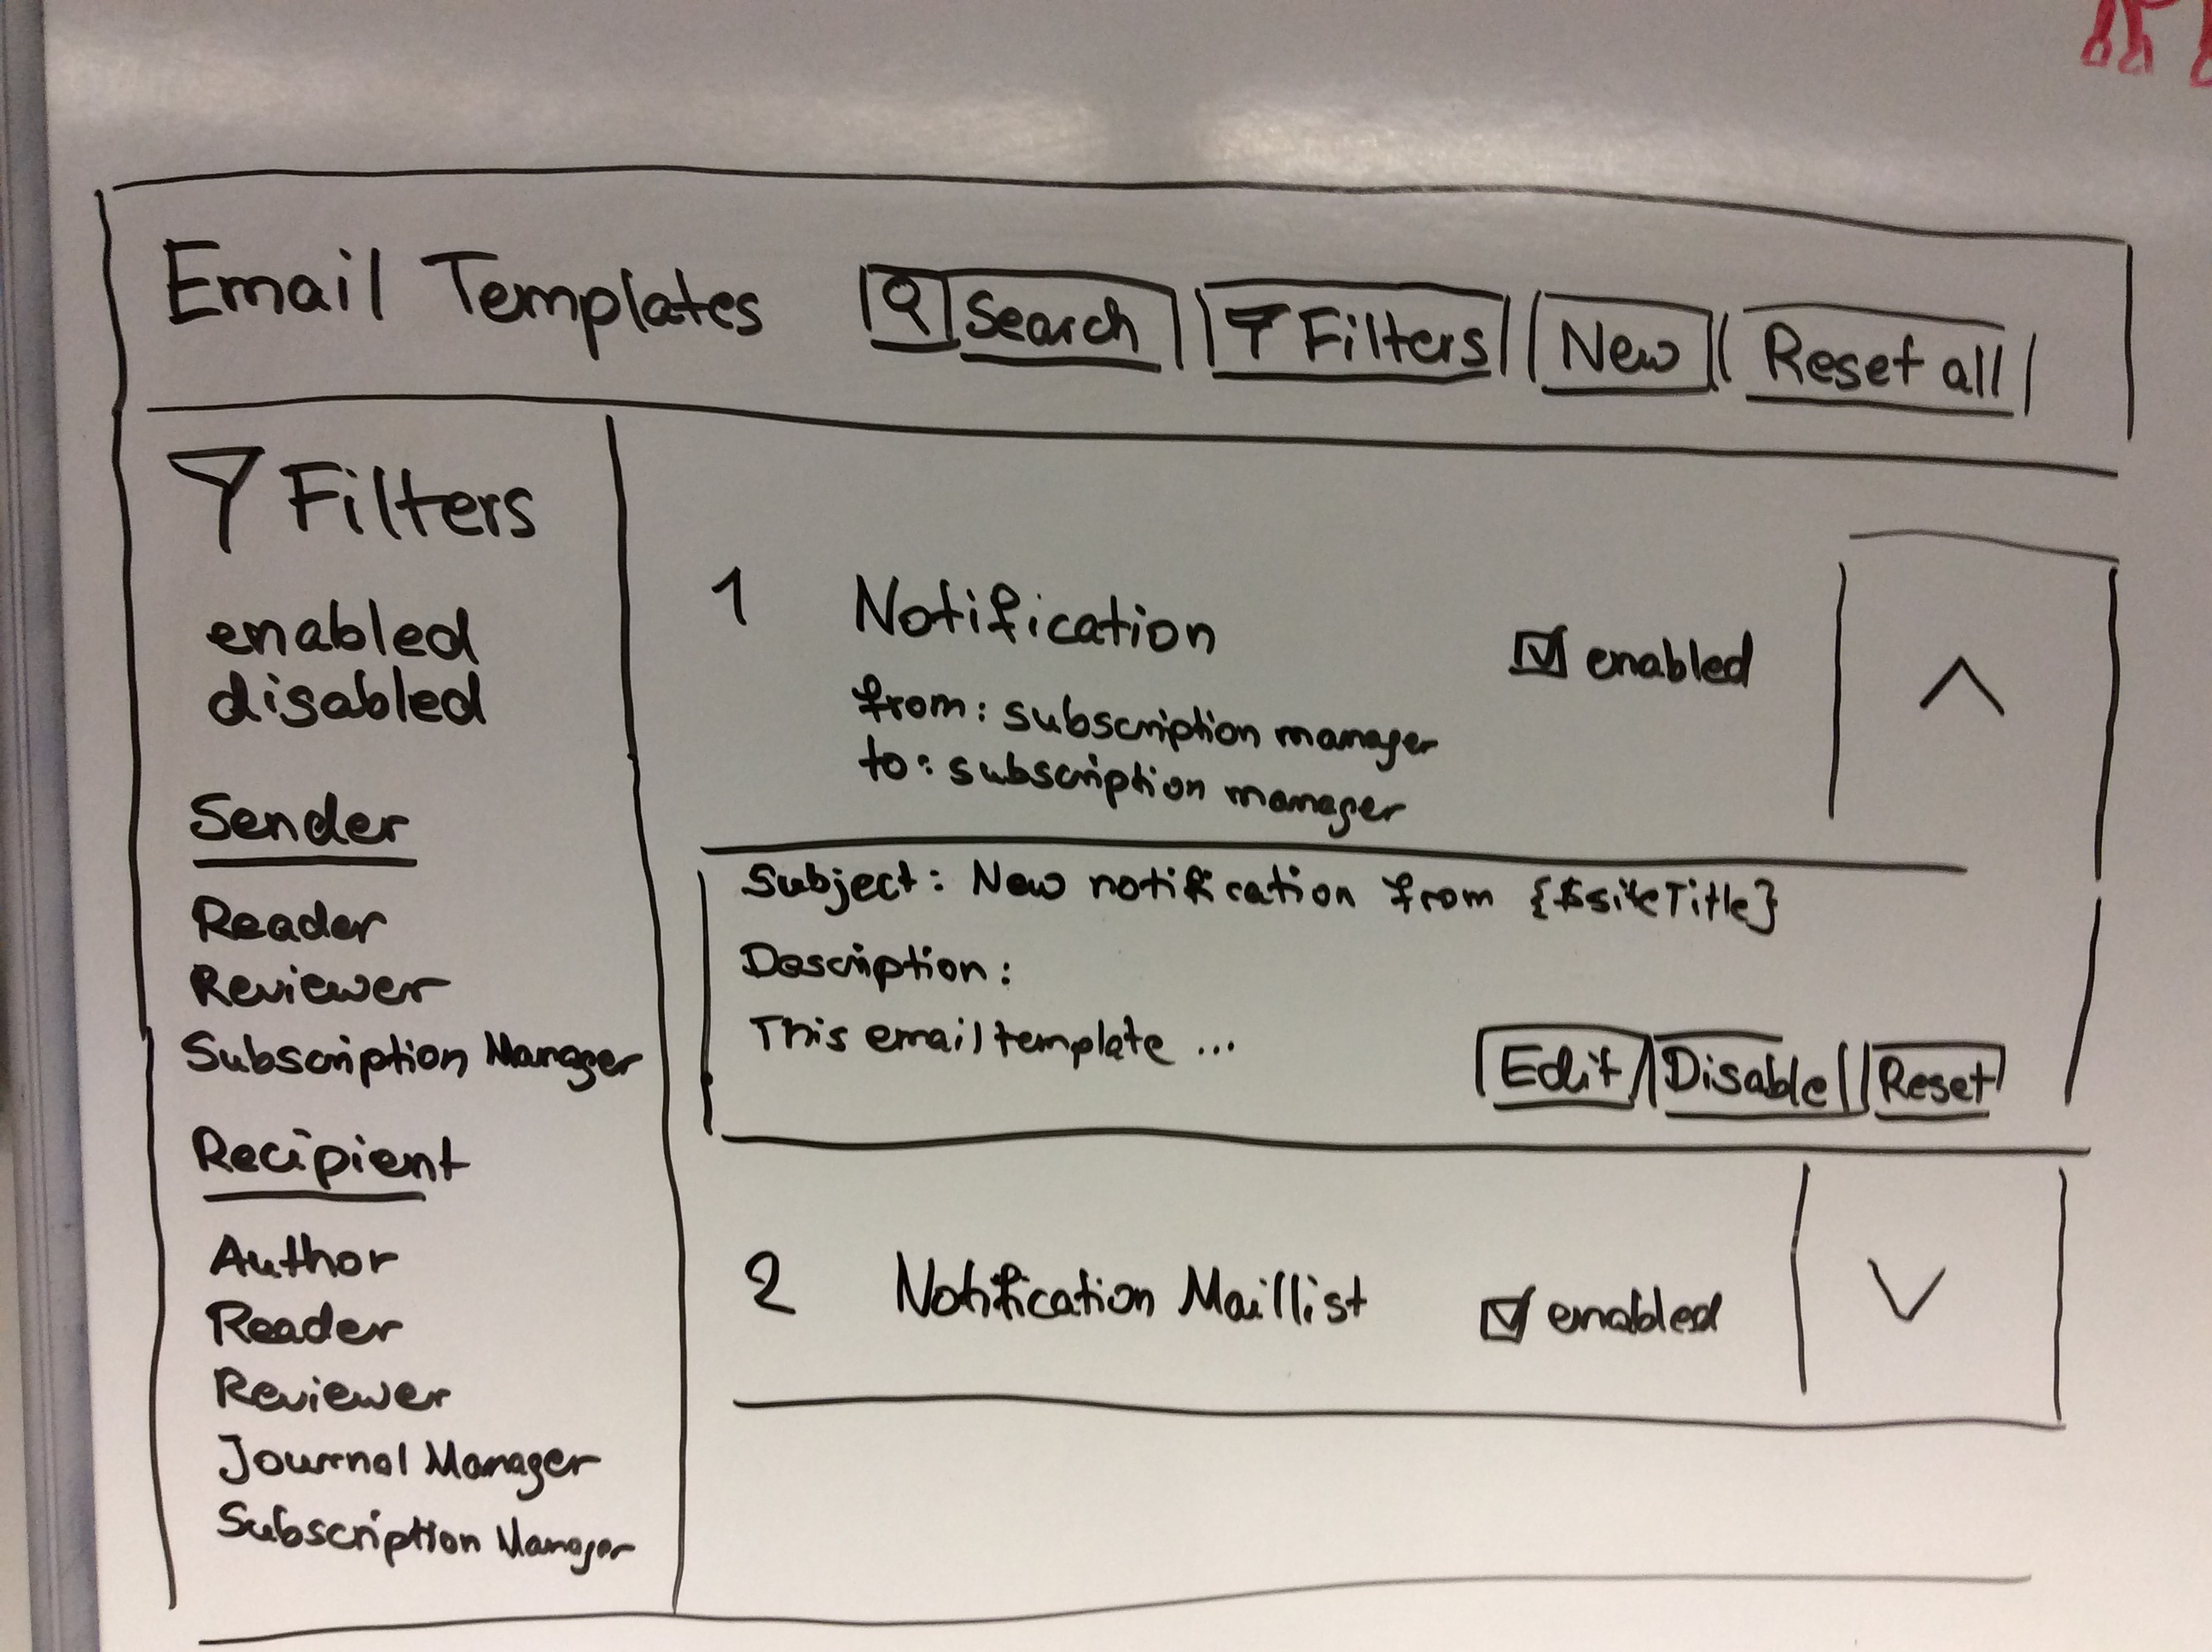 Email Templates Search Filters New Reset all
Filters
enabled
disabled
Sender
Reader
Reviewer
Subscription Manager
Recipient
Author
Reader
Reviewer
Journal Manager
Subscription Manager
1 Notification enabled
from: subscription manager
to: subscription manager
Subject: New notification from {$siteTitle}
Description:
This email template ...
Edit Disable Reset
2 Notification Maillist enabled